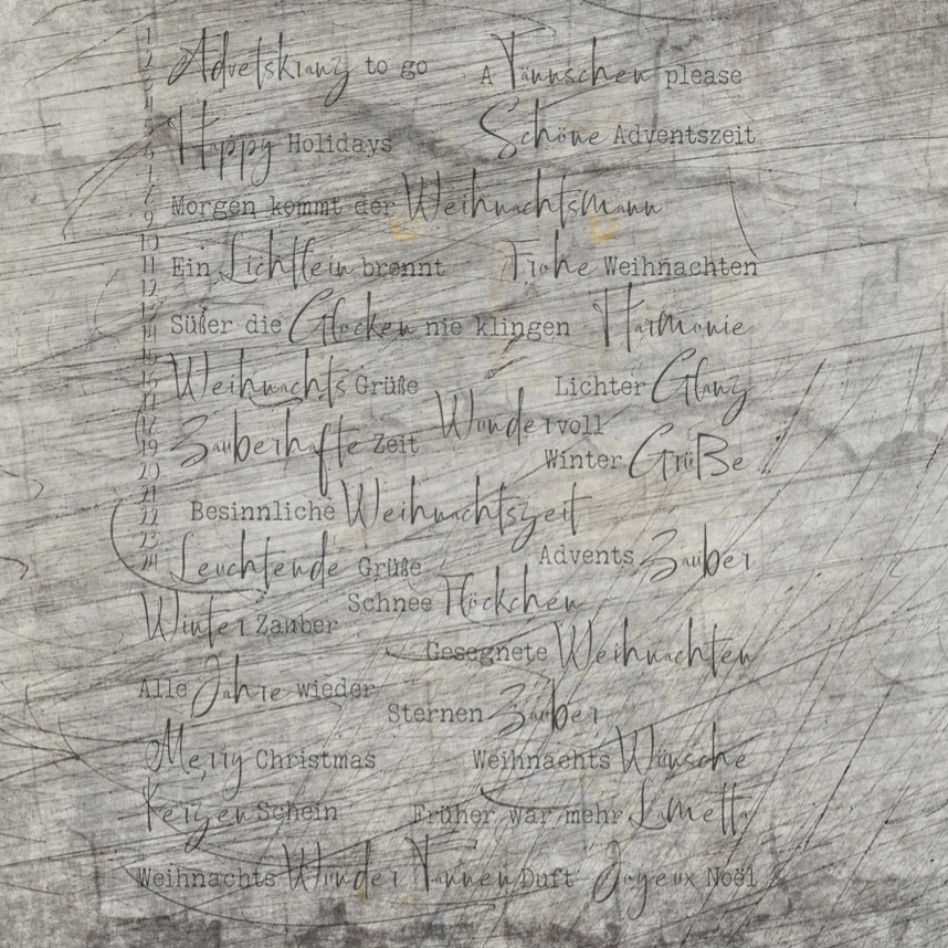 1
2
3
4
5
6
7
9
10
11
12
13
14
15
16
17
19
20
21
22
23
24
Advetskranz to go
A Tännschen please
Happy Holidays
Schöne Adventszeit
Morgen kommt der Weihnachtsmann
Ein Lichtlein brennt
Frohe Weihnachten
Süßer die Glocken nie klingen
Harmonie
Weihnachts Grüße
Lichter Glanz
Wundervoll
Zauberhafte Zeit
Winter GrüßBe
Besinnliche Weihnachtszeit
Advents Zauber
Leuchtende Grüße
Schnee Flöckchen
Winter Zauber
Gesegnete Weihnachten
Alle Jahre wieder
Sternen Zauber
Merry Christmas
Weihnachts Wünsche
Kerzen Schein
Früher war mehr Lametta
Weihnachts Wunder
Tannen Duft
Joyeux Noël